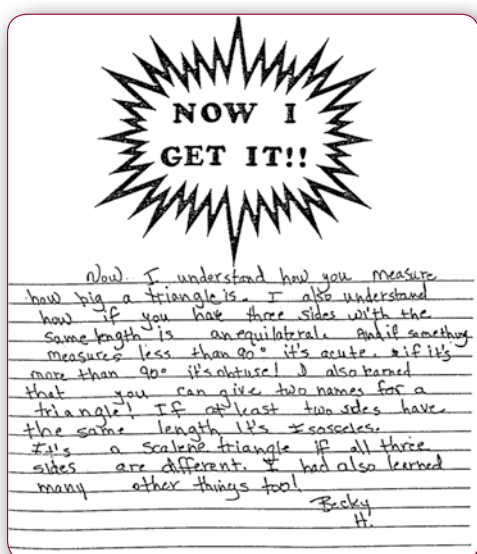 NOW I
GET IT!!
Now I understand how you measure
how big a triangle is. I also understand
how if you have three sides with the
same length is an equilateral. And if something
measures less than 90° it's acute. & if it's
more than 90° it's obtuse! I also learned
that you can give two names for a
triangle! If at least two sides have
the same length it's isosceles.
It's a scalene triangle if all three
sides are different. I had also learned
many other things too!
Becky
H.